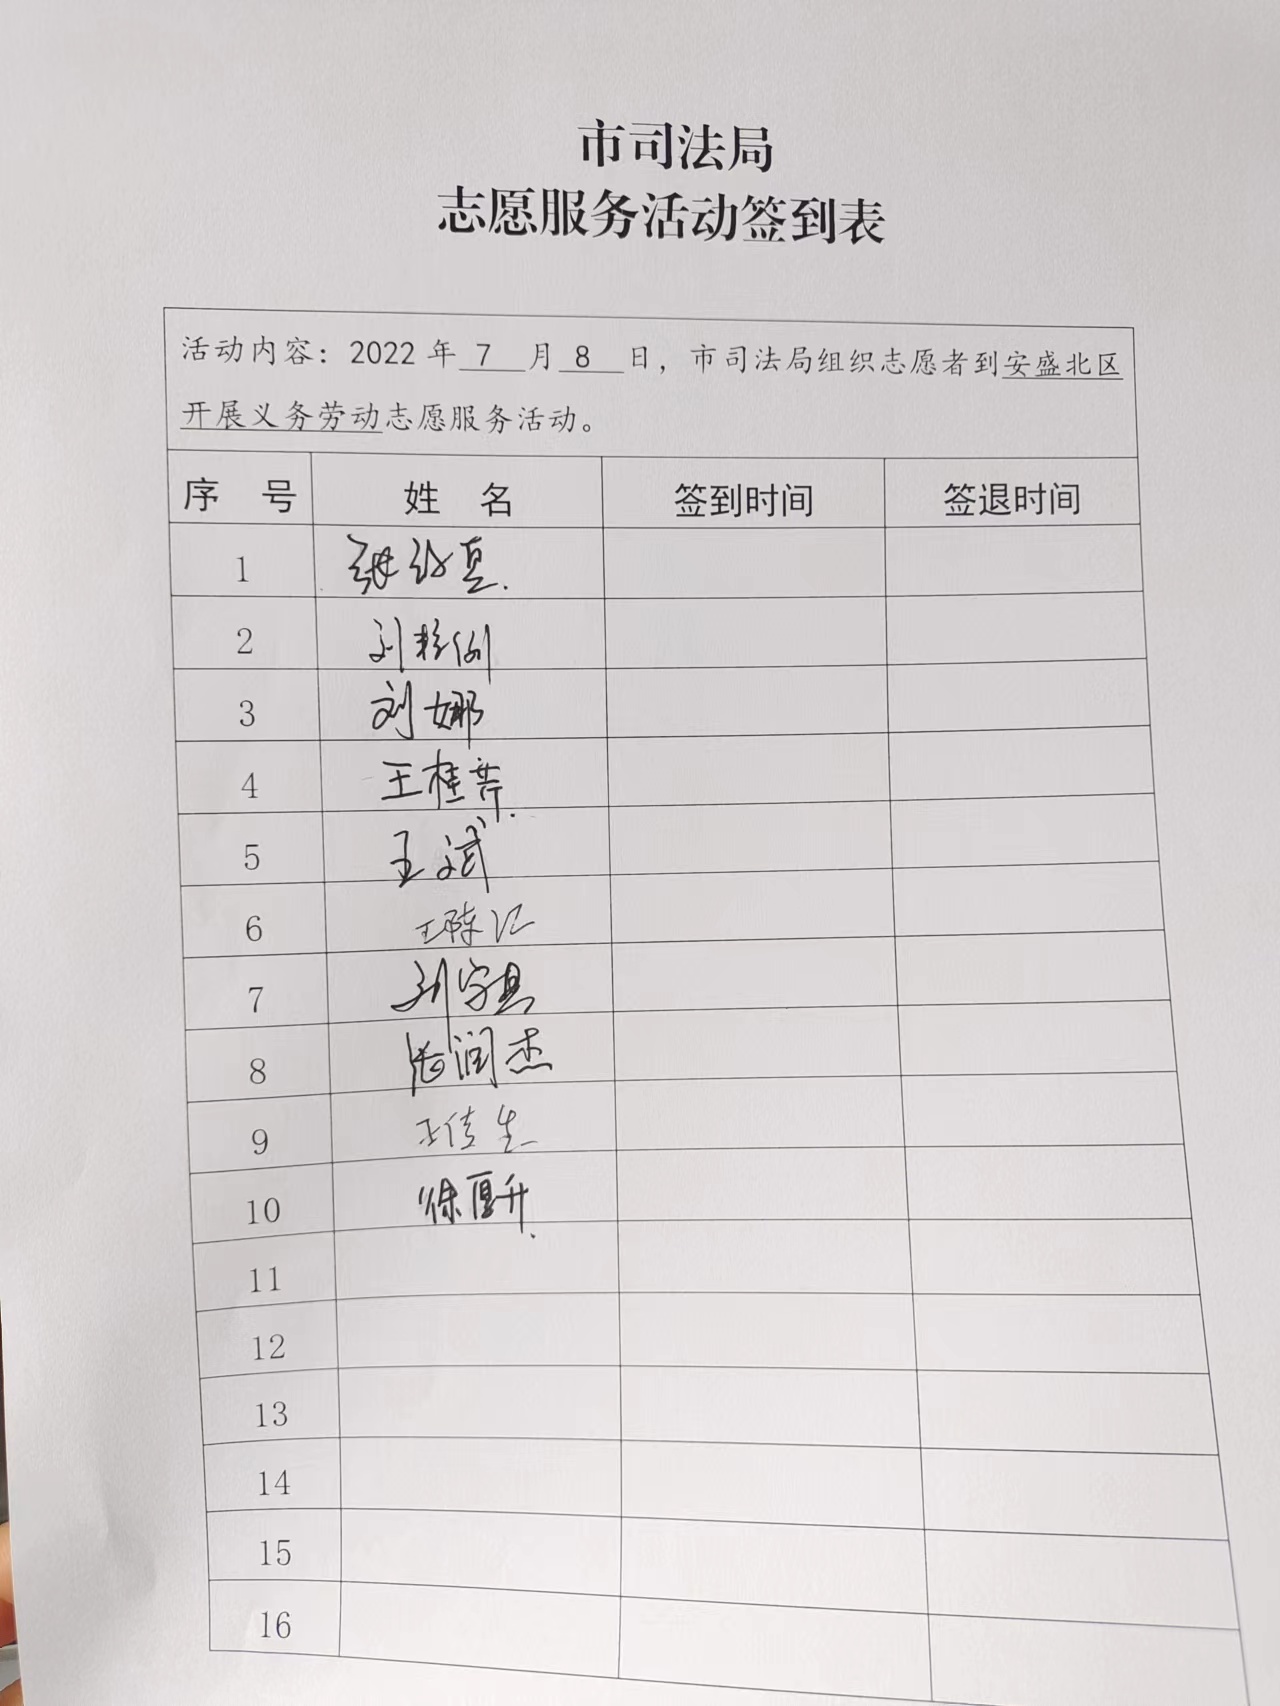 市司法局
志愿服务活动签到表
活动内容：2022 年 7 月 8 日，市司法局组织志愿者到安盛北区
开展义务劳动志愿服务活动。
序 号 姓 名 签到时间 签退时间
1
2 刘
3 刘娜
4 王桂芹
5 王斌
6 王陈江
7 刘字
8 张润杰
9 王佳生
10 徐厚升
11
12
13
14
15
16